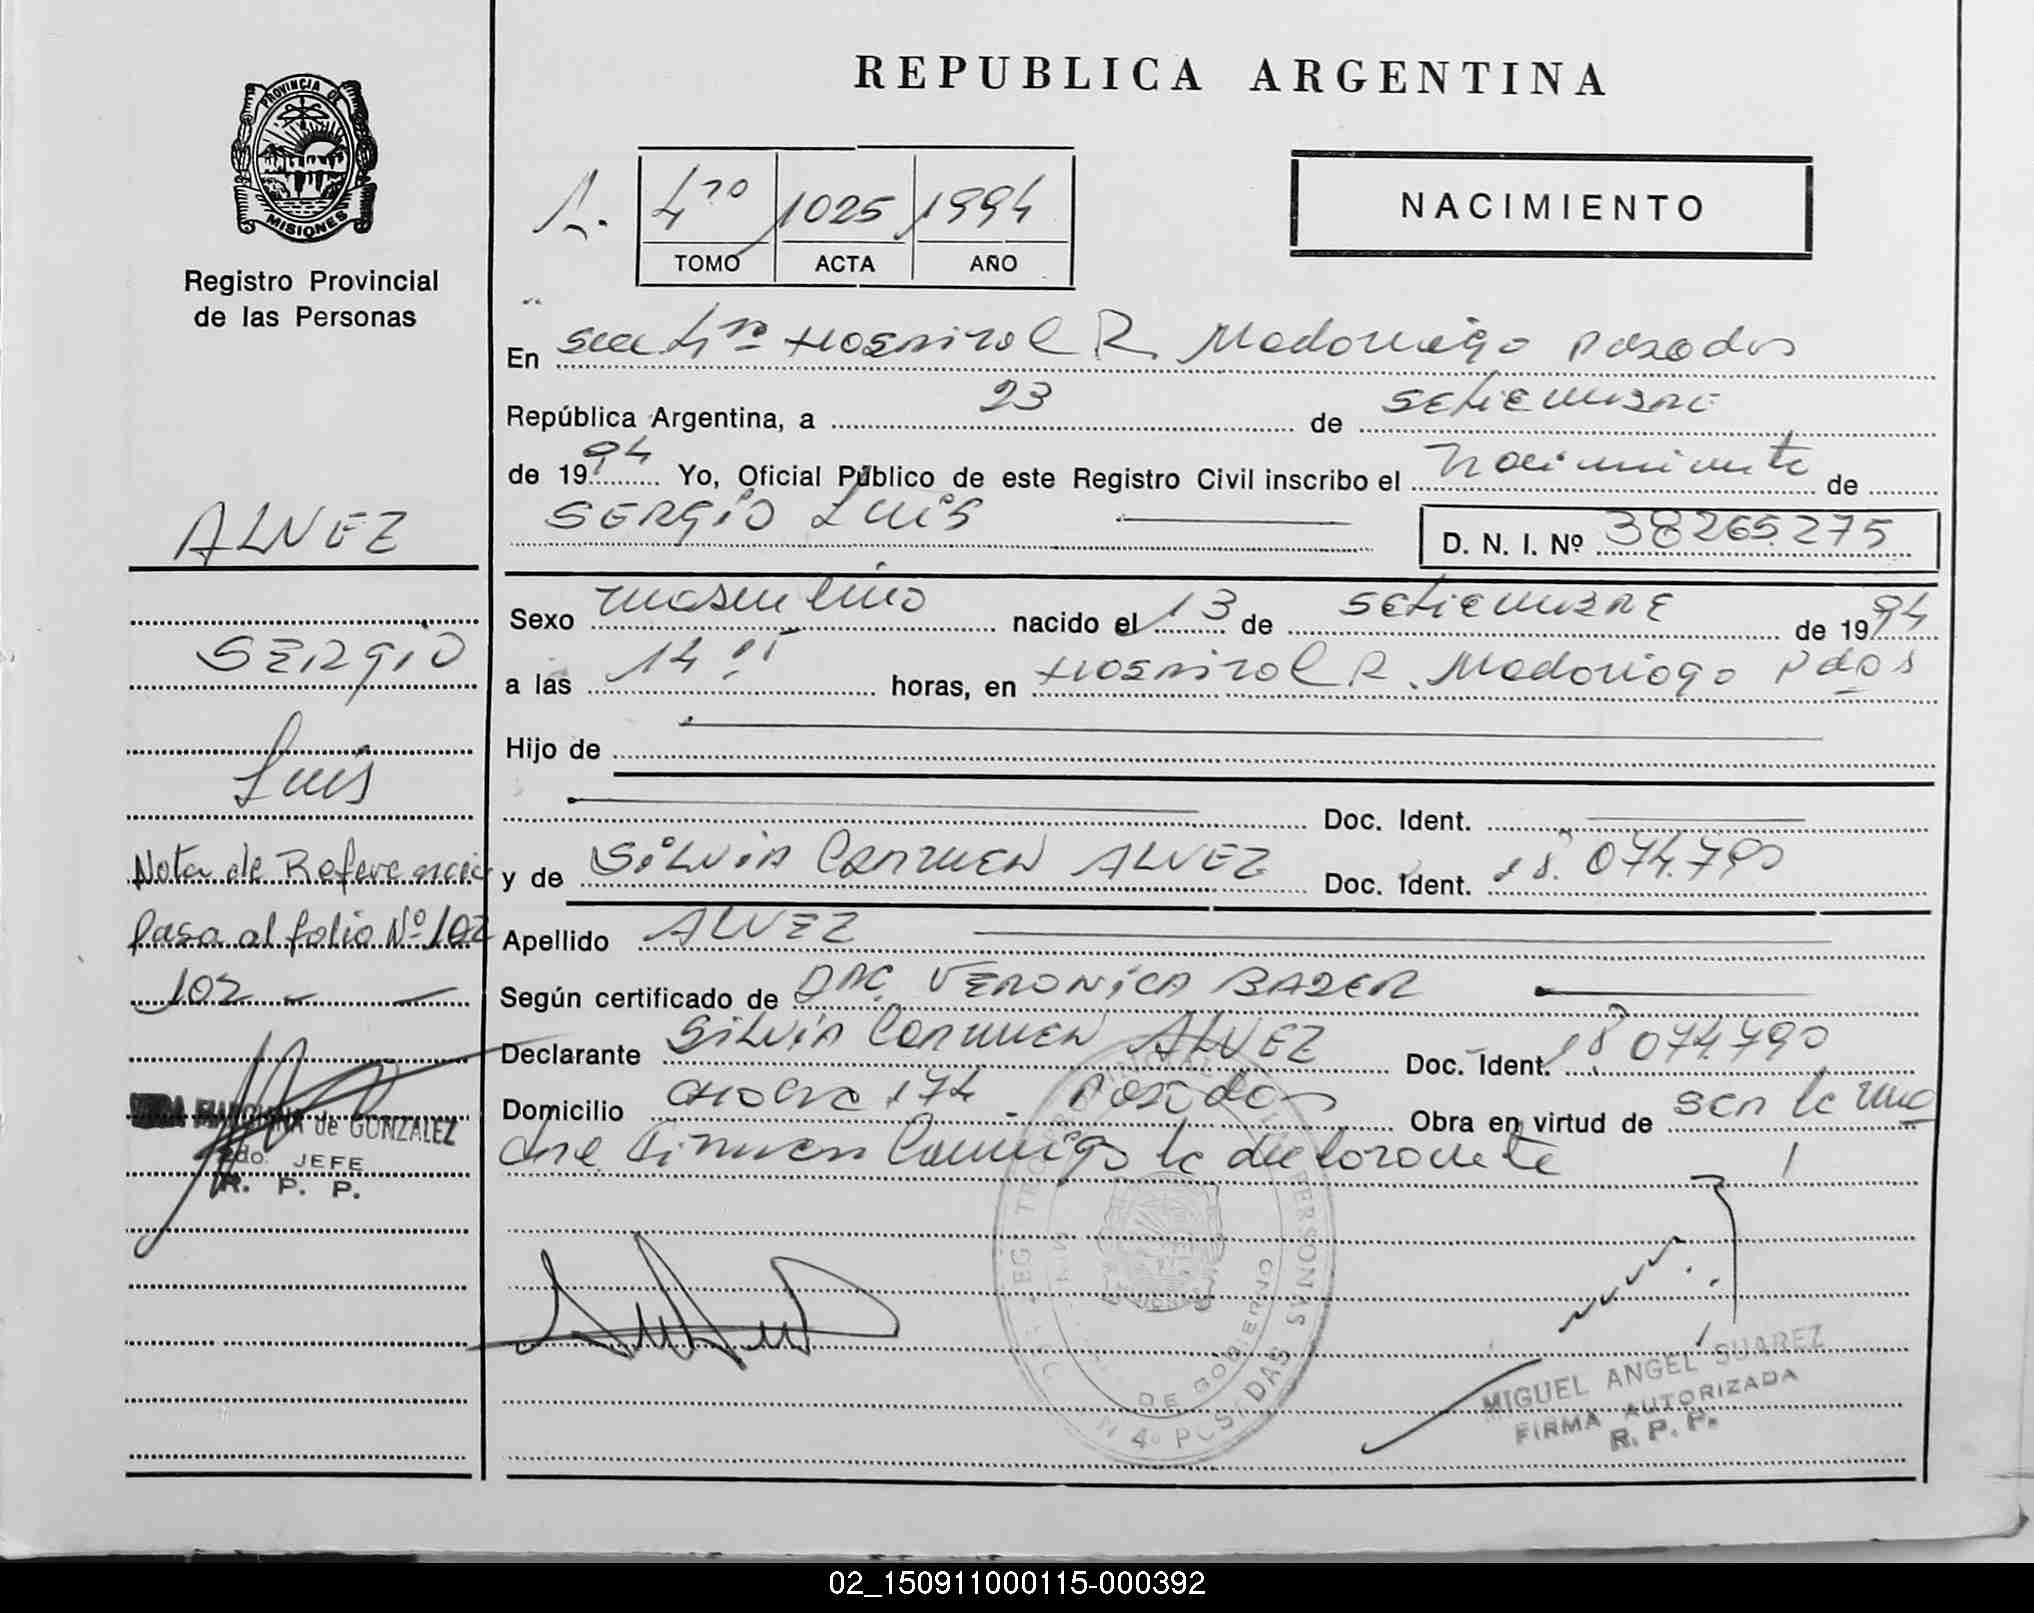 PROVINCIA DE
MISIONES
Registro Provincial
de las Personas
REPUBLICA ARGENTINA
4to 1025 1994
TOMO ACTA AÑO
NACIMIENTO
En Sec 4ta Hospital R. Madariaga Posadas
República Argentina, a 23 de SETIEMBRE
de 1994 Yo, Oficial Público de este Registro Civil inscribo el Nacimiento de
SERGIO LUIS D. N. I. Nº 38265.275
Sexo masculino nacido el 13 de SETIEMBRE de 1994
a las 14 horas, en Hospital R. Madariaga Pdas
Hijo de
Doc. Ident.
y de SILVIA CARMEN ALVEZ Doc. Ident. 18.074.790
Apellido ALVEZ
Según certificado de DRA. VERONICA BADER
Declarante SILVIA CARMEN ALVEZ Doc. Ident. 18.074.790
Domicilio 174 - Posadas Obra en virtud de ser la
firman conmigo la declarante
ALVEZ
SERGIO
Luis
Nota de Referencia
Pasa al folio Nº 102
102
de GONZALEZ
JEFE
R. P. P.
PERSONAS
DE GOBIERNO
N 4º POSADAS
MIGUEL ANGEL SUAREZ
FIRMA AUTORIZADA
R. P. P.
02_150911000115-000392